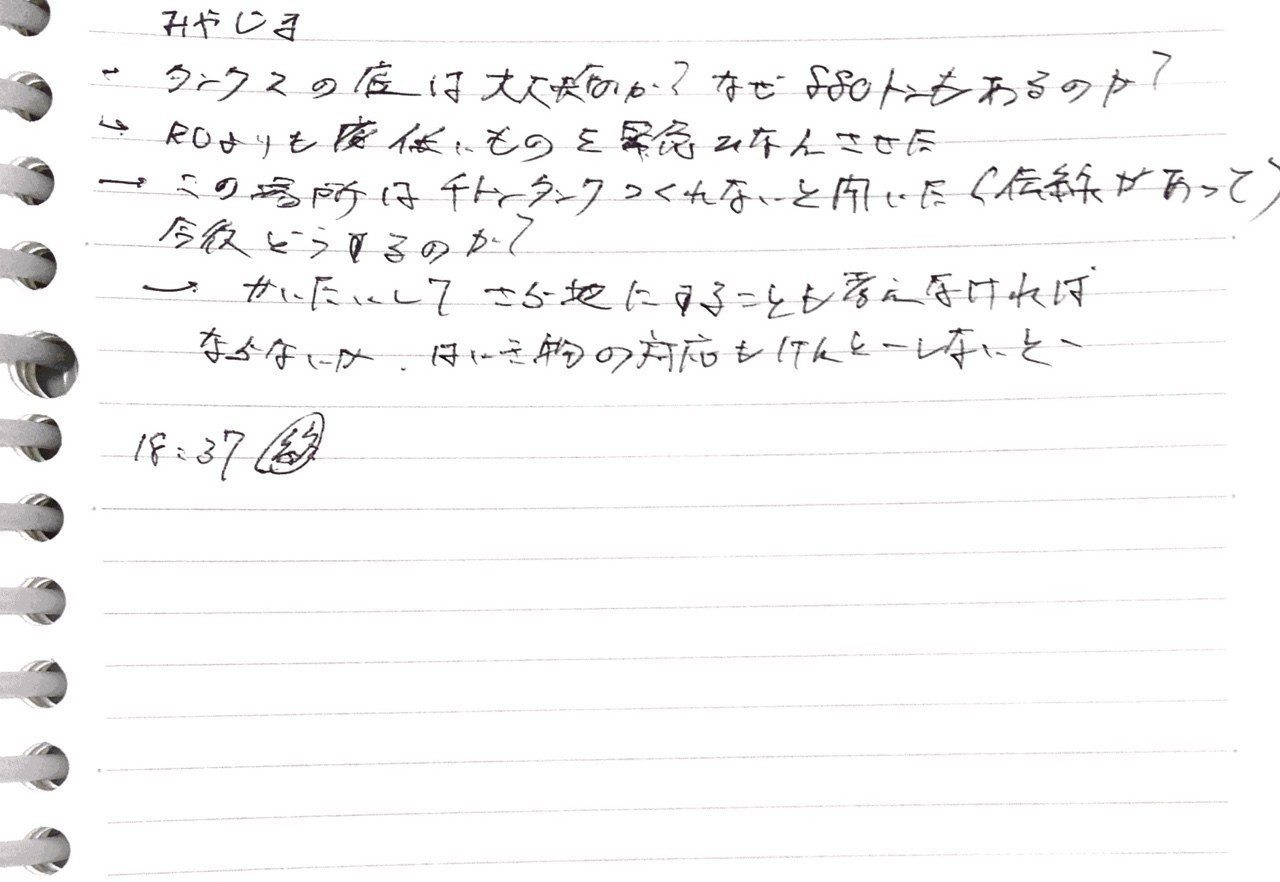 みやじま
- タンクスの底は大丈夫なのか？なぜ880トンもあるのか？
→ ROよりも濃度低いものを緊急ひなんさせた
→ この場所は千トンタンクつくれないと聞いた（伝線があって）
今後どうするのか？
→ かいたいしてさら地にすることも考えなければ
ならないが、はいき物の対応もけんとーしないとー
18:37 終